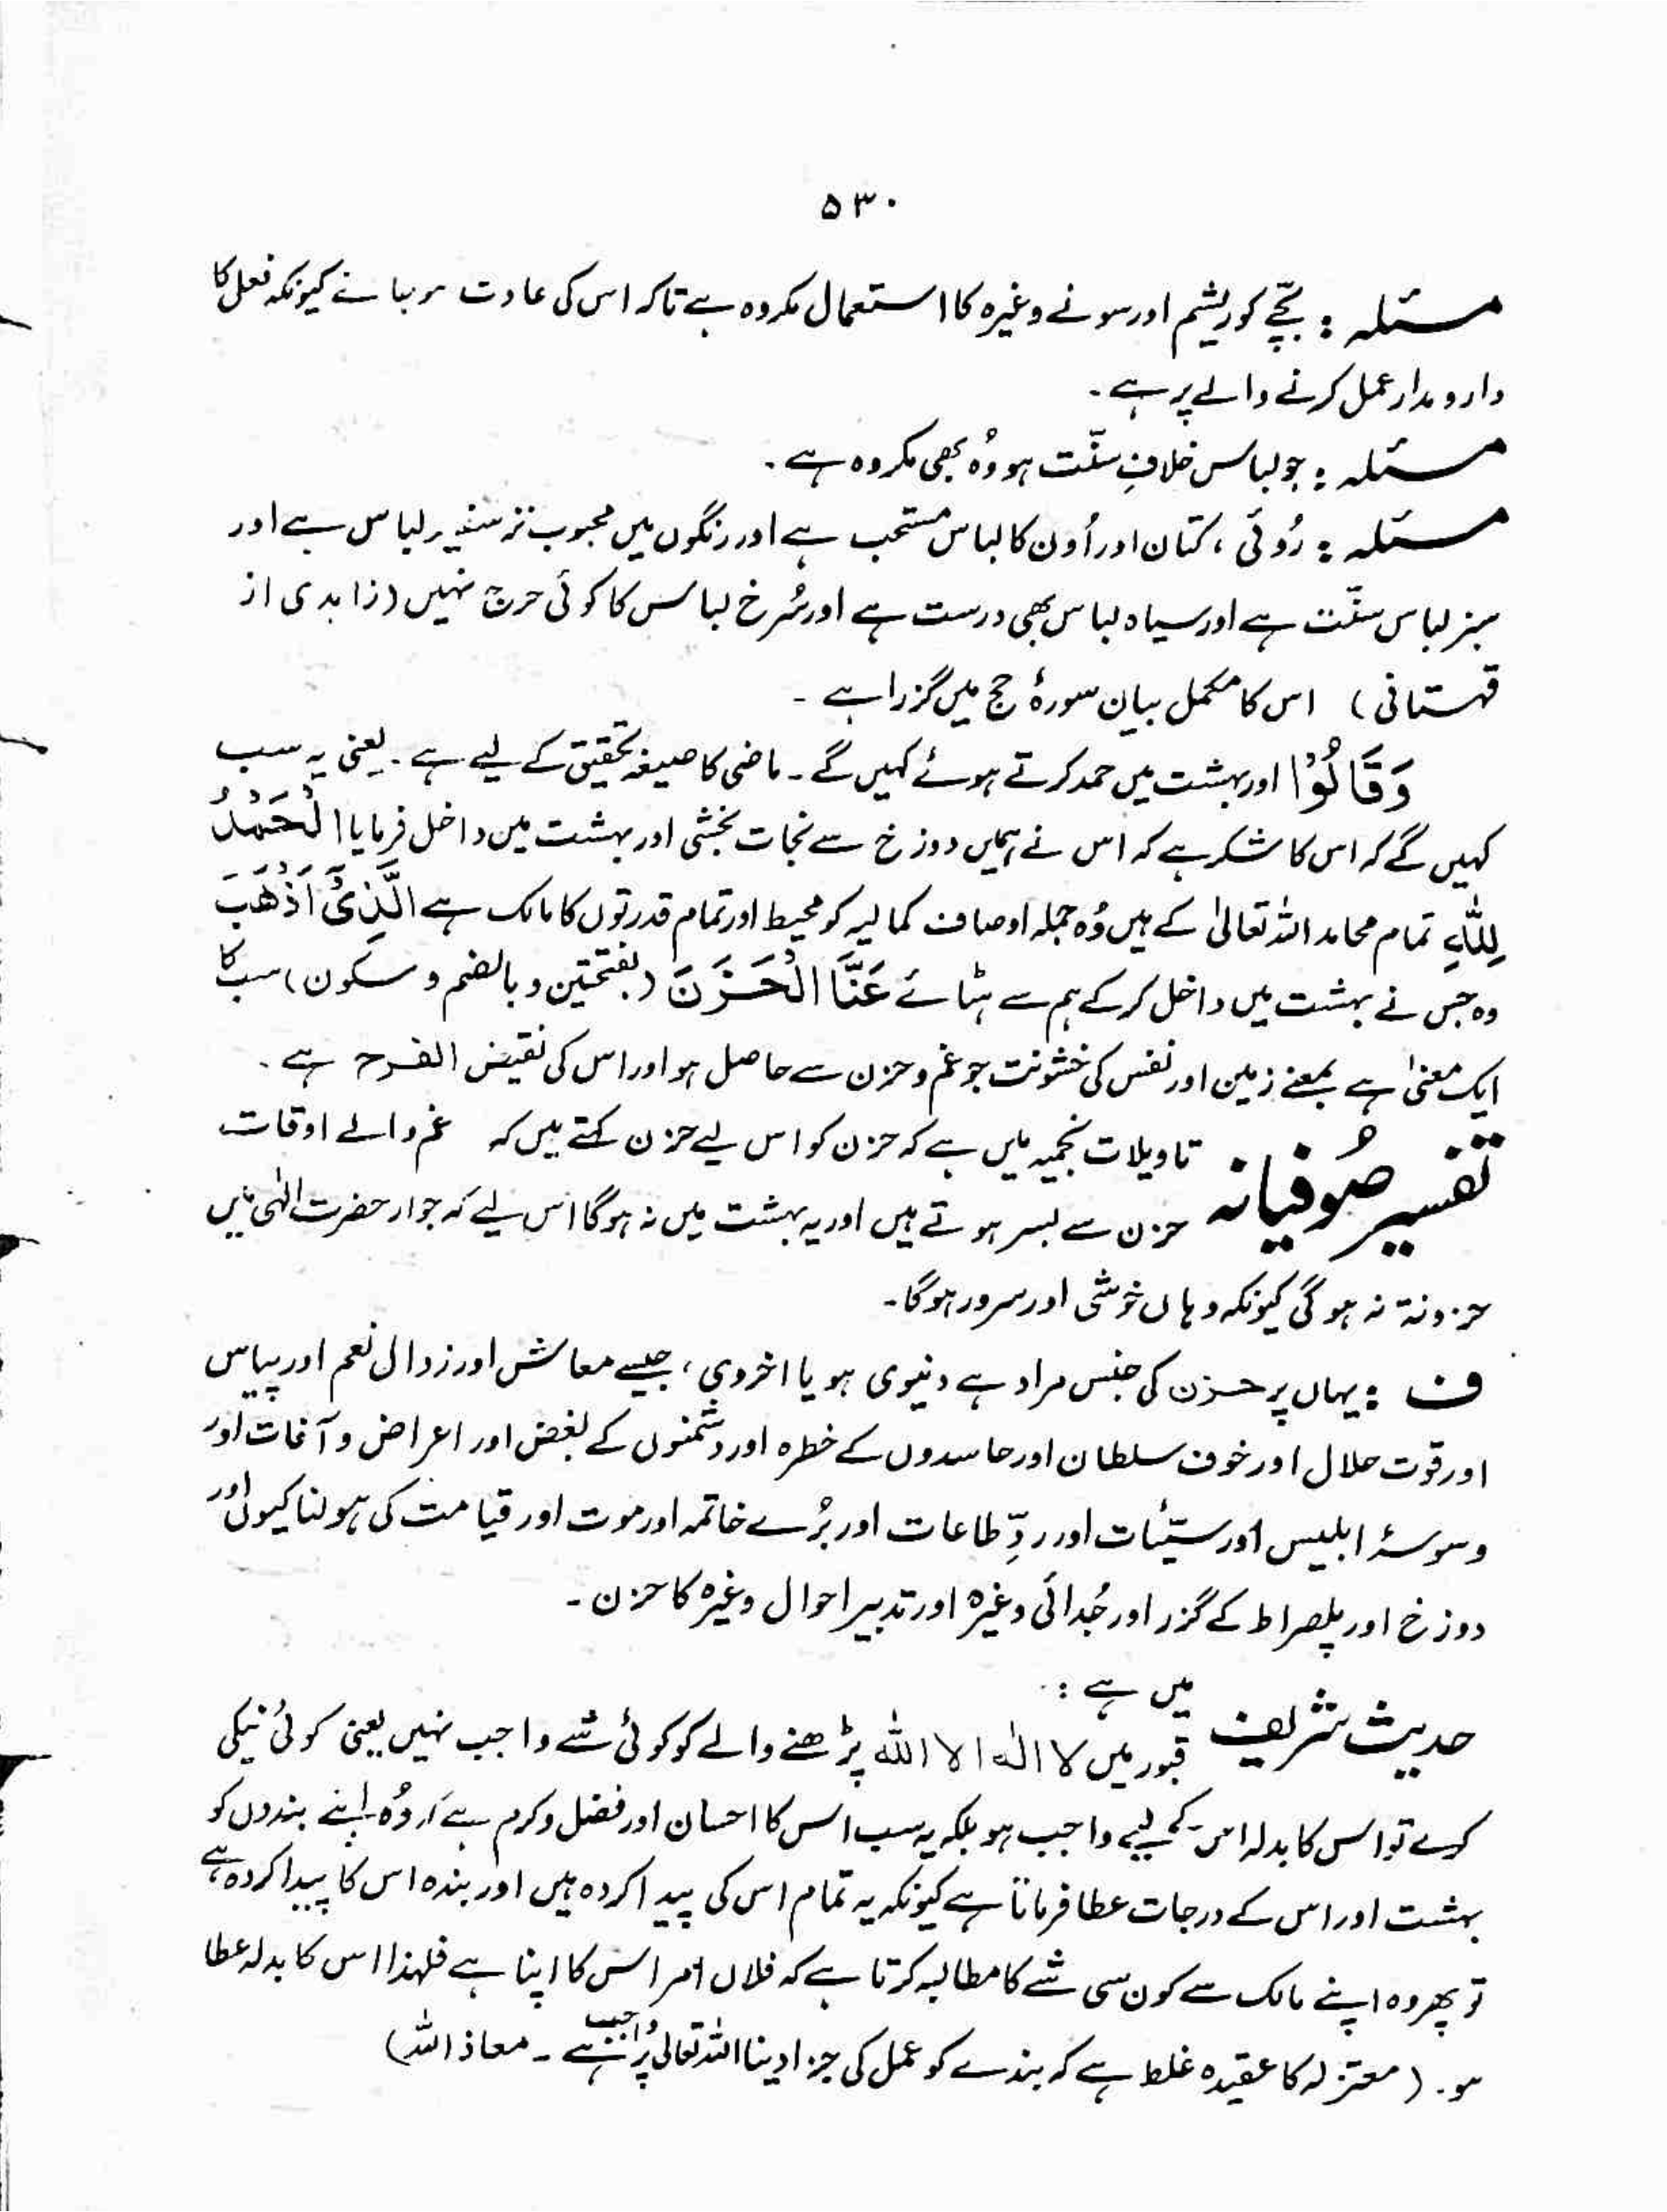 ۵۳۰
مسئلہ : بچّے کو ریشم اور سونے وغیرہ کا استعمال مکروہ ہے تاکہ اس کی عادت کیونکہ فعل کا
دار و مدار عمل کرنے والے پر ہے ۔
مسئلہ : جو لباس خلافِ سنّت ہو وُہ بھی مکروہ ہے ۔
مسئلہ : رُوئی ، کتان اور اُون کا لباس مستحب ہے اور رنگوں میں محبوب تر سفید لباس ہے اور
سبز لباس سنّت ہے اور سیاہ لباس بھی درست ہے اور سُرخ لباس کا کوئی حرج نہیں (زاہدی از
قہستانی) اس کا مکمل بیان سورۂ حج میں گزرا ہے ۔
وَقَالُوْا اور بہشت میں حمد کرتے ہوئے کہیں گے ۔ ماضی کا صیغہ تحقیق کے لیے ہے ۔ یعنی یہ سب
کہیں گے کہ اس کا شکر ہے کہ اس نے ہمیں دوزخ سے نجات بخشی اور بہشت میں داخل فرمایا الْحَمْدُ
لِلّٰہِ تمام محامد اللہ تعالیٰ کے ہیں وُہ جملہ اوصاف کمالیہ کو محیط اور تمام قدرتوں کا مالک ہے الَّذِیْٓ اَذْھَبَ
وہ جس نے بہشت میں داخل کر کے ہم سے ہٹائے عَنَّا الْحَزَنَ (بفتحتین و بالضم و سکون) سب کا
ایک معنیٰ ہے بمعنے زمین اور نفس کی خشونت جو غم و حزن سے حاصل ہو اور اس کی نقیض الفرح ہے ۔
تفسیر صُوفیانہ تاویلات نجمیہ میں ہے کہ حزن کو اس لیے حزن کہتے ہیں کہ غم والے اوقات
حزن سے بسر ہوتے ہیں اور یہ بہشت میں نہ ہوگا اس لیے کہ جوار حضرت الٰہی میں
حزونۃ نہ ہوگی کیونکہ وہاں خوشی اور سرور ہوگا۔
ف : یہاں پر حزن کی جنس مراد ہے دنیوی ہو یا اخروی ، جیسے معاش اور زوال نعم اور پیاس
اور قوت حلال اور خوف سلطان اور حاسدوں کے خطرہ اور دشمنوں کے بغض اور اعراض و آفات اور
وسوسۂ ابلیس اور سیّئات اور ردِّ طاعات اور بُرے خاتمہ اور موت اور قیامت کی ہولناکیوں اور
دوزخ اور پلصراط کے گزر اور جُدائی وغیرہ اور تدبیر احوال وغیرہ کا حزن ۔
حدیث شریف میں ہے :
قبور میں لا الٰہ الا اللہ پڑھنے والے کو کوئی شے واجب نہیں یعنی کوئی نیکی
کرے تو اس کا بدلہ اس کے لیے واجب ہو بلکہ یہ سب اس کا احسان اور فضل و کرم ہے اور وُہ اپنے بندوں کو
بہشت اور اس کے درجات عطا فرماتا ہے کیونکہ یہ تمام اس کی پیدا کردہ ہیں اور بندہ اس کا پیدا کردہ ہے
تو پھر وہ اپنے مالک سے کون سی شے کا مطالبہ کرتا ہے کہ فلاں امر اس کا اپنا ہے فلہٰذا اس کا بدلہ عطا
ہو ۔ (معتزلہ کا عقیدہ غلط ہے کہ بندے کو عمل کی جزا دینا اللہ تعالیٰ پر واجب ہے ۔ معاذ اللہ)